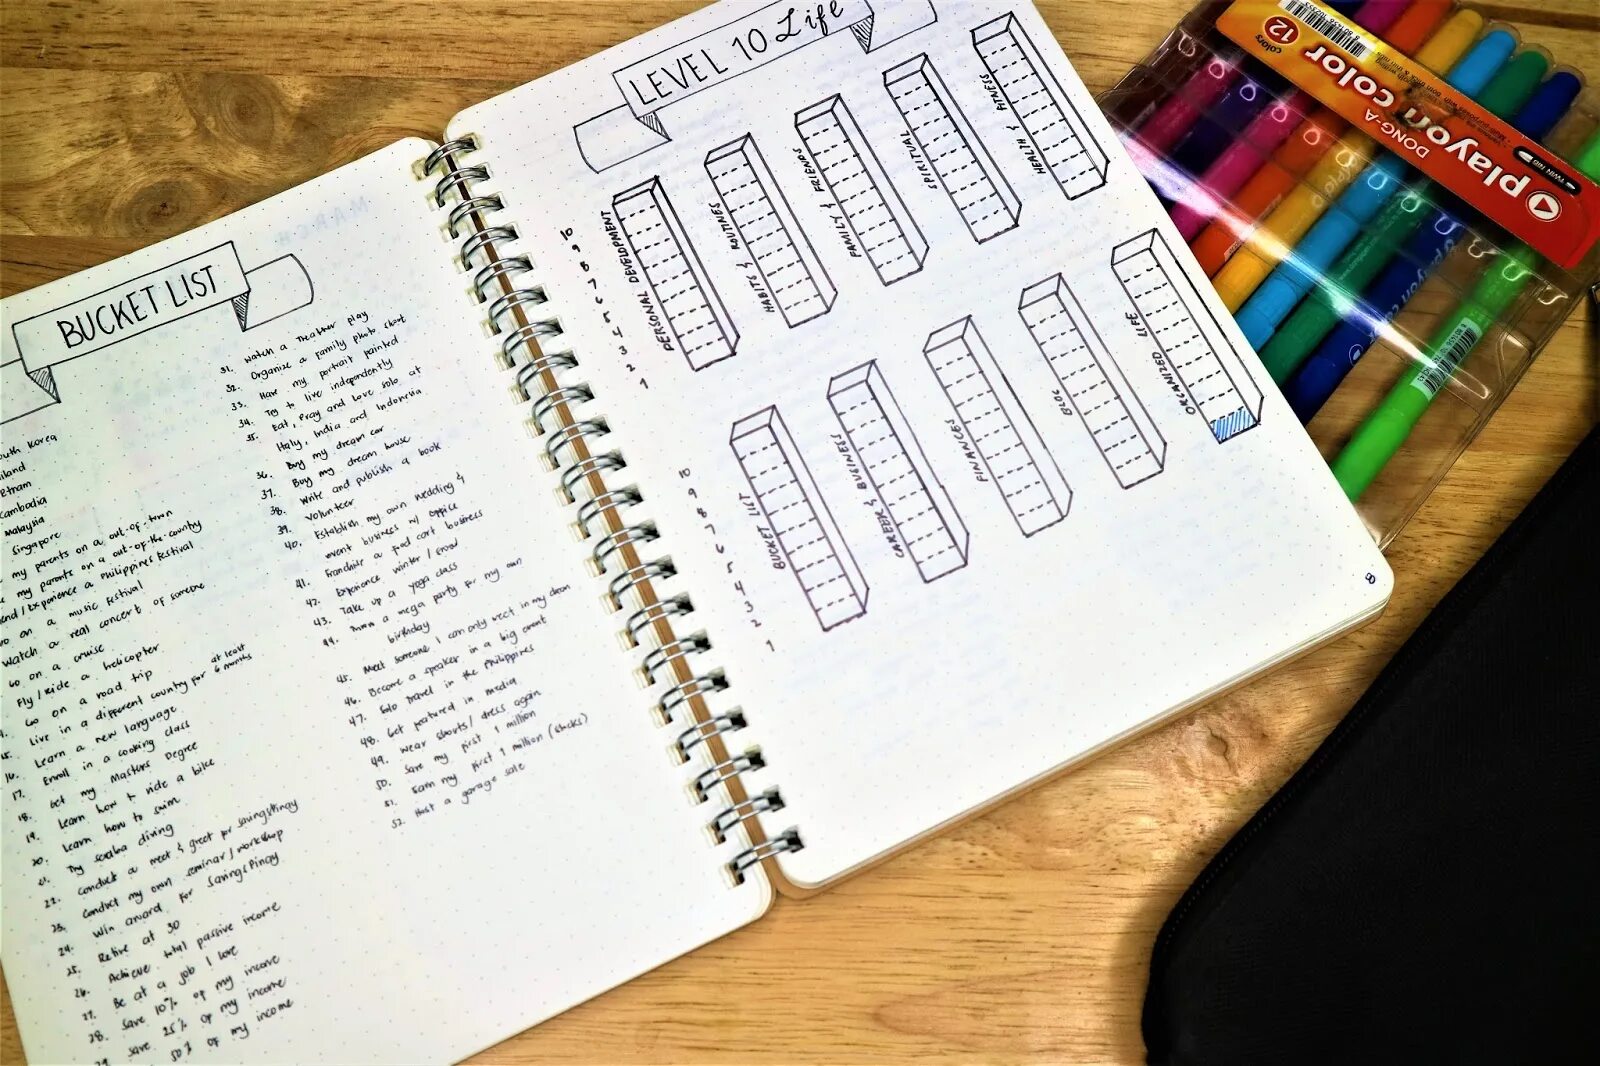 BUCKET LIST
outh Korea
iland
etnam
Cambodia
Malaysia
Singapore
my parents on a out-of-town
my parents on a out-of-the-country
end/Experience a Philippines festival
on a music festival
Watch a real concert of someone
Go on a cruise
Fly/ride a helicopter
Go on a road trip
Live in a different country for at least 6 months
16. Learn a new language
17. Enroll in a cooking class
18. Get my Masters Degree
19. Learn how to ride a bike
20. Learn how to swim
21. Try scuba diving
22. Conduct a meet & greet for SavingsPinay
23. Conduct my own seminar/workshop
24. Win award for SavingsPinay
25. Retire at 30
26. Achieve total passive income
27. Be at a job I love
28. Save 10% of my income
29. Save 25% of my income
50% of my income
31. Watch a Theather play
32. Organize a family photo shoot
33. Have my portrait painted
34. Try to live independently
35. Eat, Pray and Love solo at
Italy, India and Indonesia
36. Buy my dream car
37. Buy my dream house
38. Write and publish a book
39. Volunteer
40. Establish my own wedding &
event business w/ office
41. Franchise a food cart business
42. Experience winter/snow
43. Take up a yoga class
44. Throw a mega party for my own
birthday
45. Meet someone I can only meet in my dream
46. Become a speaker in a big event
47. Solo travel in the Philippines
48. Get featured in media
49. Wear shorts/dress again
50. Save my first 1 million
51. Earn my first 1 million (stocks)
52. Host a garage sale
LEVEL 10 Life
10
9
8
7
6
5
4
3
2
1
PERSONAL DEVELOPMENT
HABITS & ROUTINES
FAMILY & FRIENDS
SPIRITUAL
HEALTH & FITNESS
10
9
8
7
6
5
4
3
2
1
BUCKET LIST
CAREER & BUSINESS
FINANCES
BLOG
ORGANIZED LIFE
8
DONG-A
playon color
12 colors
TWIN TIP